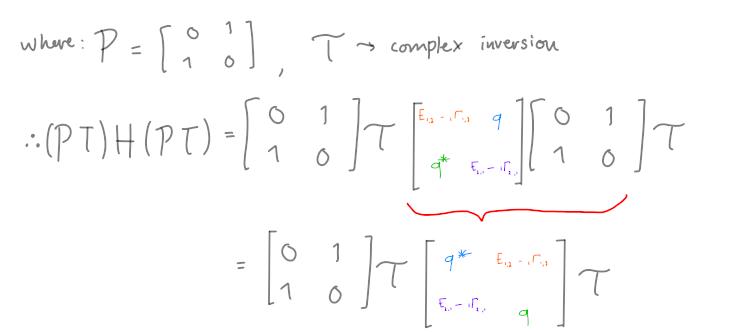 where: P = [ 0 1 1 0 ], T → complex inversion
∴ (PT) H (PT) = [ 0 1 1 0 ] T [ E₁,₂ - iΓ₁,₂ q q* E₁,₁ - iΓ₁,₁ ] [ 0 1 1 0 ] T
= [ 0 1 1 0 ] T [ q* E₁,₂ - iΓ₁,₂ E₁,₁ - iΓ₁,₁ q ] T